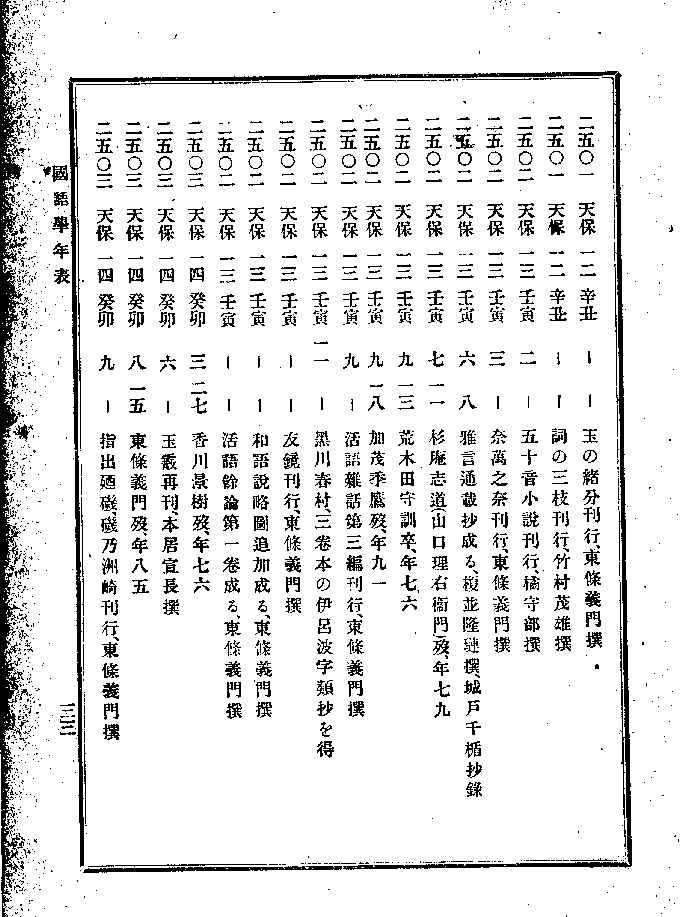 二五〇一 天保 一二 辛丑 ー ー 玉の緒分刊行、東條義門撰
二五〇一 天保 一二 辛丑 ー ー 詞の三枝刊行、竹村茂雄撰
二五〇二 天保 一三 壬寅 二 ー 五十音小說刊行、橘守部撰
二五〇二 天保 一三 壬寅 三 ー 奈萬之奈刊行、東條義門撰
二五〇二 天保 一三 壬寅 六 八 雅言通載抄成る、榎並隆璉撰、城戶千楯抄錄
二五〇二 天保 一三 壬寅 七 一一 杉庵志道(山口理右衞門)歿、年七九
二五〇二 天保 一三 壬寅 九 一三 荒木田守訓卒、年七六
二五〇二 天保 一三 壬寅 九 一八 加茂季鷹歿、年九一
二五〇二 天保 一三 壬寅 九 ー 活語雜話第三編刊行、東條義門撰
二五〇二 天保 一三 壬寅 一一 ー 黑川春村、三卷本の伊呂波字類抄を得
二五〇二 天保 一三 壬寅 ー ー 友鏡刊行、東條義門撰
二五〇二 天保 一三 壬寅 ー ー 和語說略圖追加成る、東條義門撰
二五〇二 天保 一三 壬寅 ー ー 活語餘論第一卷成る、東條義門撰
二五〇三 天保 一四 癸卯 三 二七 香川景樹歿、年七六
二五〇三 天保 一四 癸卯 六 ー 玉霰再刊、本居宣長撰
二五〇三 天保 一四 癸卯 八 一五 東條義門歿、年八五
二五〇三 天保 一四 癸卯 九 ー 指出廼磯、磯乃洲崎刊行、東條義門撰
國語學年表
三三